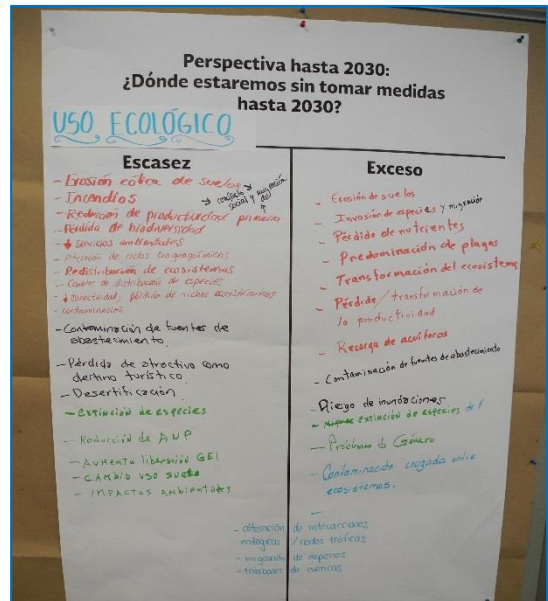 Perspectiva hasta 2030:
¿Dónde estaremos sin tomar medidas
hasta 2030?
USO ECOLÓGICO
Escasez
- Erosión eólica de suelos
- Incendios
→ conflicto social y migración del
- Reducción de productividad primaria
- Pérdida de biodiversidad
- ↓ servicios ambientales
- de ciclos biogeoquímicos
- Redistribución de ecosistemas
- Cambio de distribución de especies
- ↓ conectividad, pérdida de nichos ecosistémicos
- contaminación
- Contaminación de fuentes de
abastecimiento.
- Pérdida de atractivo como
destino turístico.
- Desertificación.
- Extinción de especies
- Reducción de ANP
- Aumenta liberación GEI
- CAMBIO USO SUELO
- IMPACTOS AMBIENTALES
Exceso
- Erosión de suelos
- Invasión de especies y migración
- Pérdida de nutrientes
- Predominación de plagas
- Transformación del ecosistema
- Pérdida/transformación de
la productividad
- Recarga de acuíferos
- Contaminación de fuentes de abastecimiento
- Riesgo de inundaciones
- extinción de especies de f
- Problemas de Género
- Contaminación cruzada entre
ecosistemas.
- alteración de interacciones
biológicas / redes tróficas
- migración de especies
- trasvases de cuencas